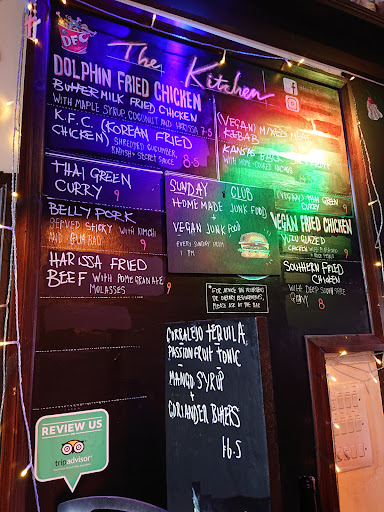 DFC
The Kitchen
DOLPHIN FRIED CHICKEN
BUTTERMILK FRIED CHICKEN
WITH MAPLE SYRUP, COCONUT AND HARISSA 7.5
K.F.C. (KOREAN FRIED
CHICKEN) SHREDDED CUCUMBER,
RADISH + SECRET SAUCE 8.5
THAI GREEN
CURRY 9
BELLY PORK
SERVED STICKY WITH KIMCHI
AND 9
HARISSA FRIED
BEEF WITH POMEGRANATE
MOLASSES 9
(VEGAN) MIXED
KEBAB
WITH HOME-COOKED
SUNDAY CLUB
HOMEMADE JUNK FOOD
+
VEGAN JUNK FOOD
EVERY SUNDAY FROM
1 PM
(VEGAN) THAI GREEN
CURRY 9
VEGAN FRIED CHICKEN
GLAZED
CHICKEN WITH
SOUTHERN FRIED
CHICKEN
WITH DEEP SOUTH STYLE
GRAVY 8
*FOR ADVICE ON ALLERGENS
OR DIETARY REQUIREMENTS,
PLEASE ASK AT THE BAR
CORRALEJO TEQUILA
PASSIONFRUIT TONIC
MANGO SYRUP
+
CORIANDER BITTERS
£6.5
REVIEW US
tripadvisor